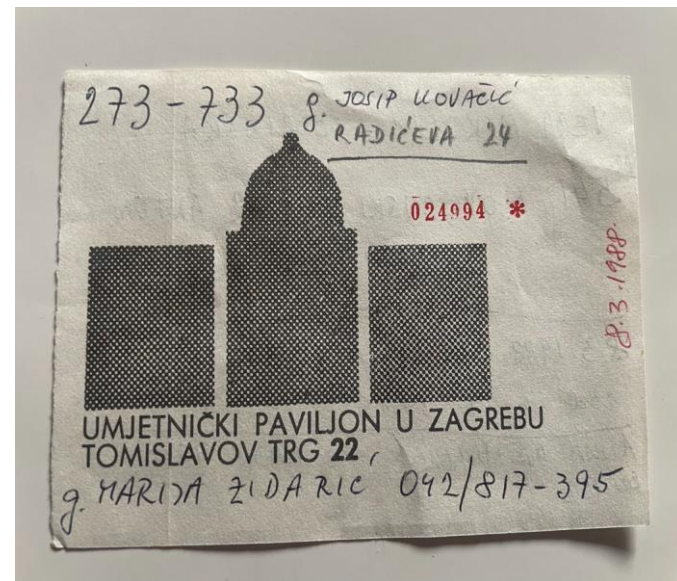 273-733 g. JOSIP KOVAČIĆ
RADIĆEVA 24
024994 *
8.3.1988.
UMJETNIČKI PAVILJON U ZAGREBU
TOMISLAVOV TRG 22,
g. MARIJA ZIDARIĆ 042/817-395